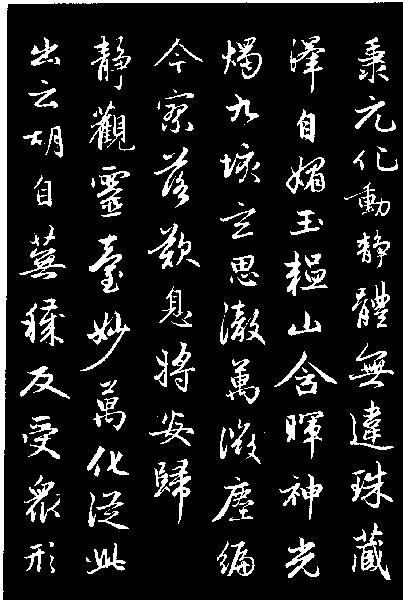 秉元化動靜體無違珠藏
澤自媚玉韞山含暉神光
燭九垓玄思徹萬微塵編
今寥落歎息將安歸
靜觀靈臺妙萬化從此
出云胡自蕪穢反受衆形